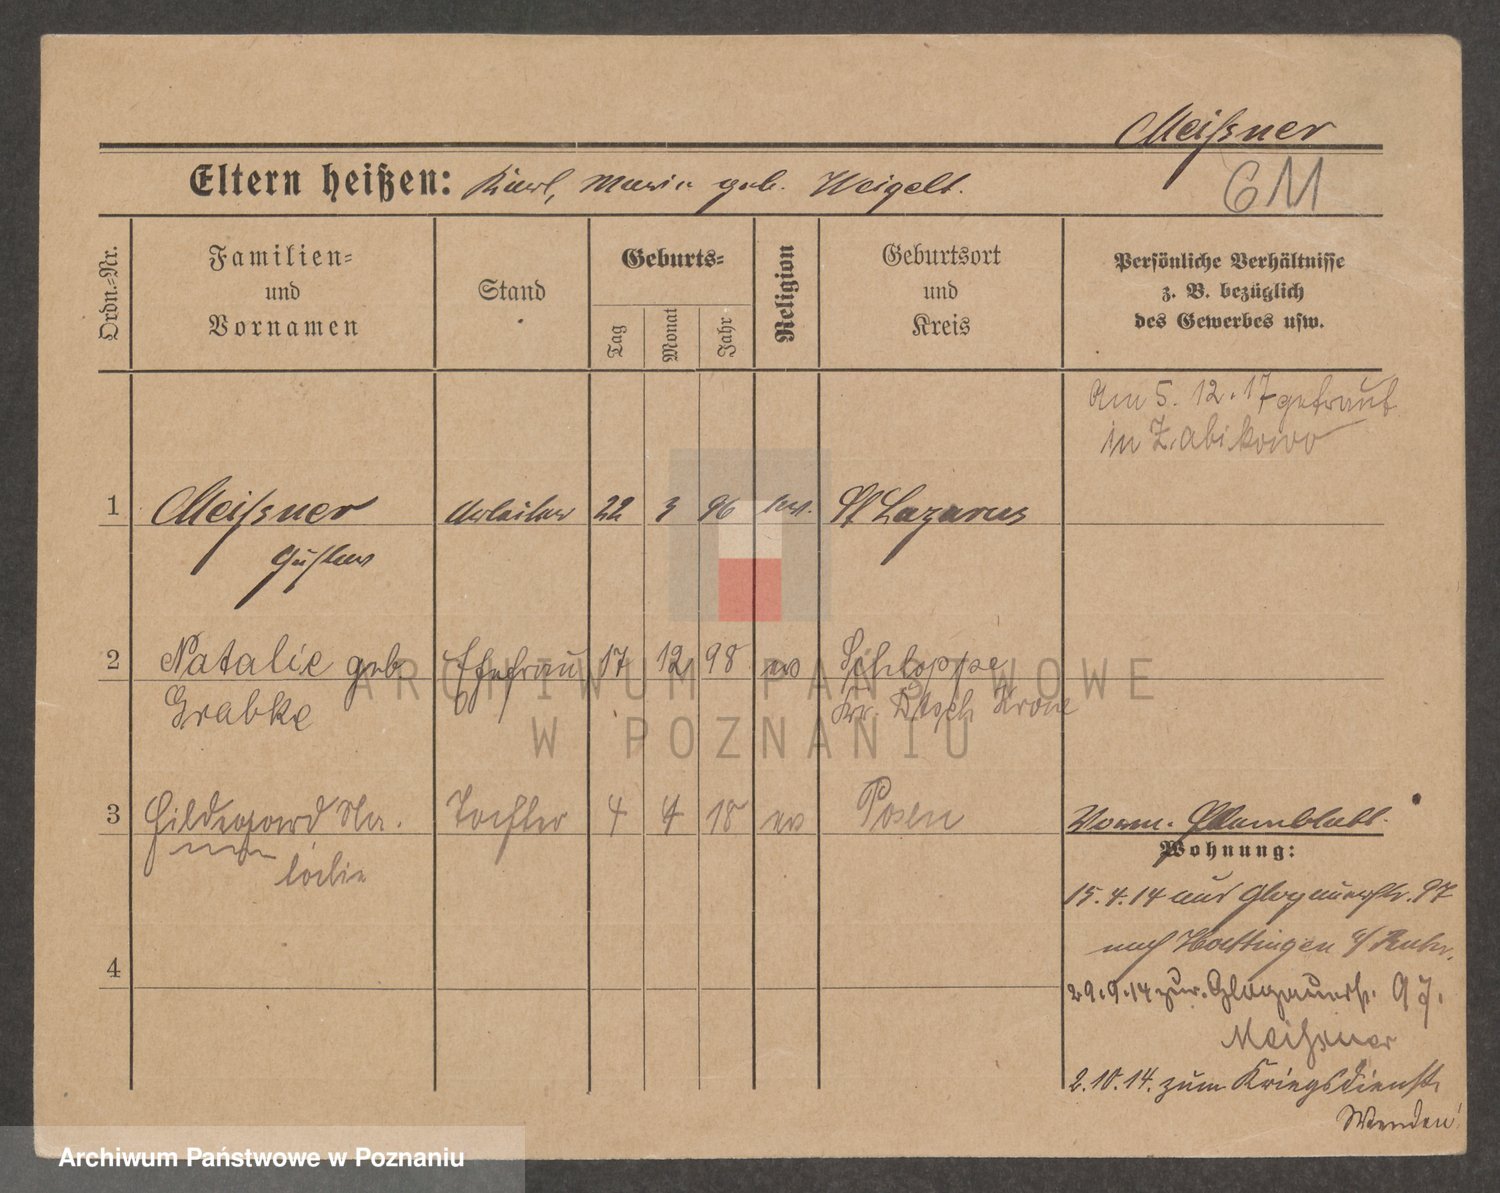 Meißner
Eltern heißen: Karl, Maria geb. Weigelt.
GM
Ordn.-Nr.
Familien-
und
Vornamen
Stand
Geburts-
Tag
Monat
Jahr
Religion
Geburtsort
und
Kreis
Persönliche Verhältnisse
z. B. bezüglich
des Gewerbes usw.
Am 5. 12. 17 getraut
in Zabikowo
1 Meißner Arbeiter 22 3 96 ev. St Lazarus
Gustav
2 Natalie geb. Ehefrau 17 12 98 ev Schloppe
Grabke Kr. Dtsch Krone
3 Hildegard Na. Tochter 4 4 18 ev Posen
Vorm. Stammblatt.
Wohnung:
15. 4. 14 aus Glogauerstr. 97
nach Hattingen a/ Ruhr.
4
29. 9. 14 zur. Glogauerstr. 97.
Meißner
2. 10. 14. zum Kriegsdienst.
Wenden!
ARCHIWUM PAŃSTWOWE
W POZNANIU
Archiwum Państwowe w Poznaniu